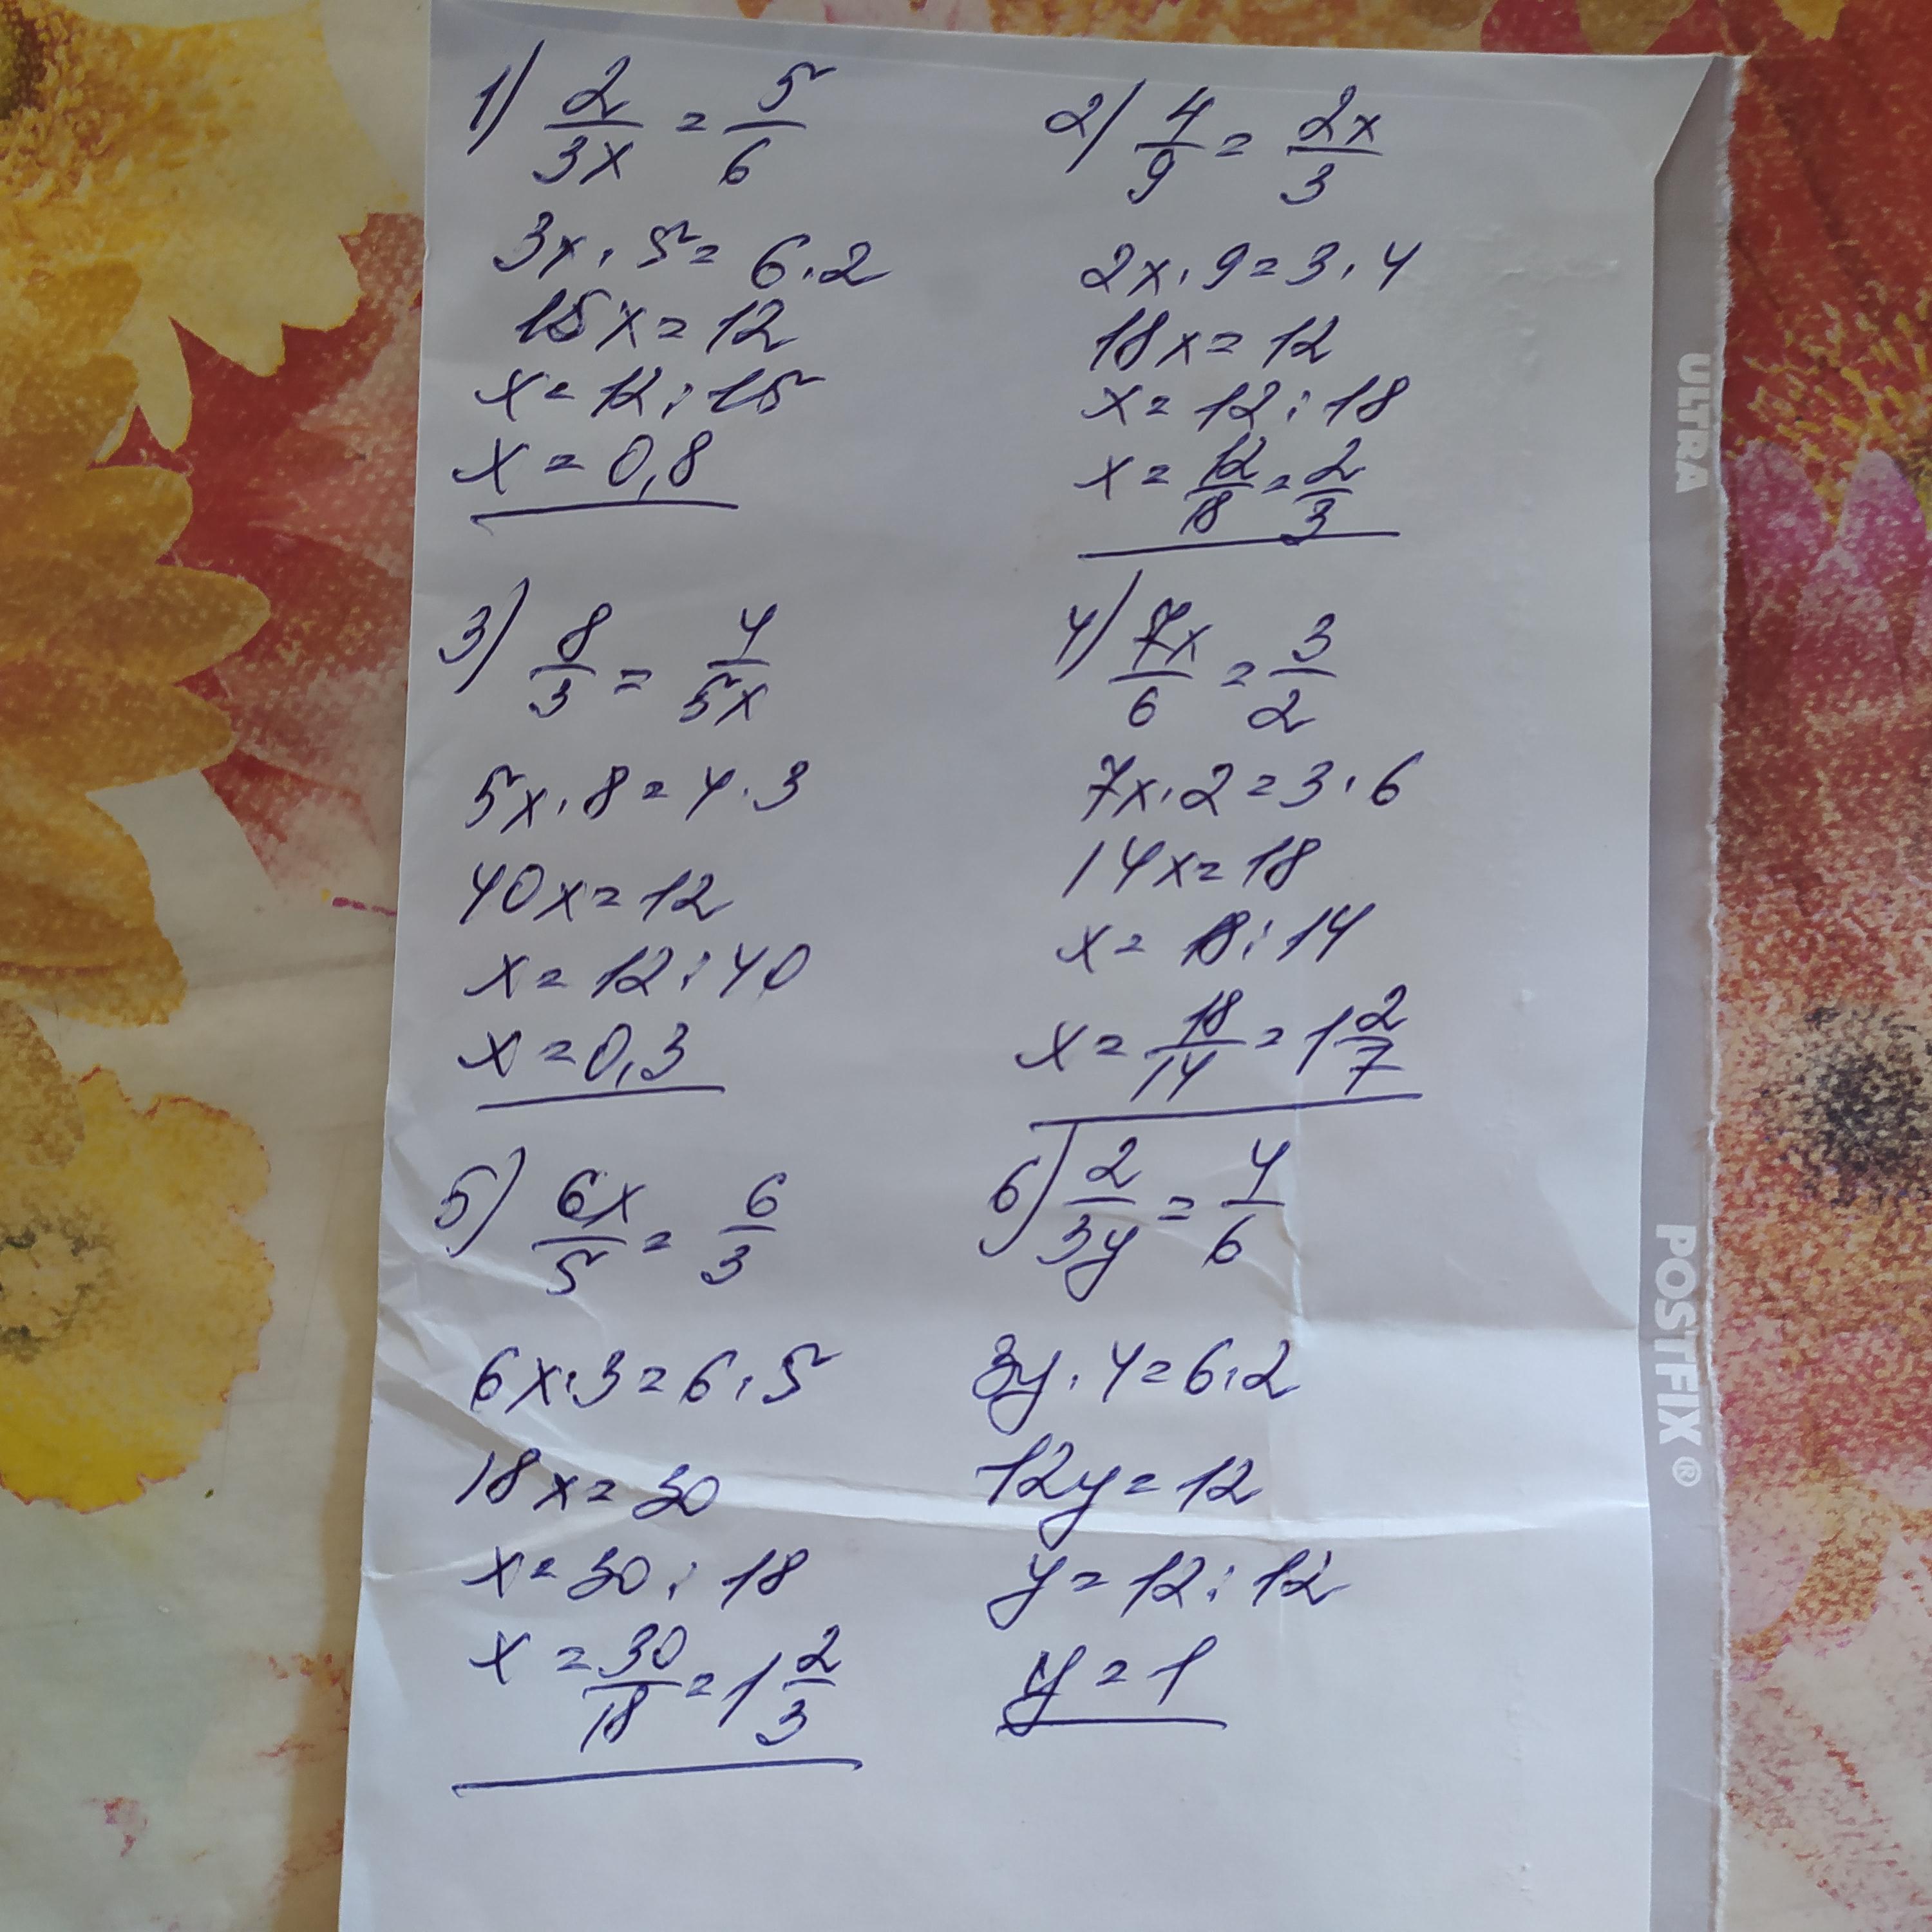 1) 2/3x = 5/6
3x · 5 = 6 · 2
15x = 12
x = 12 : 15
x = 0,8
2) 4/9 = 2x/3
2x · 9 = 3 · 4
18x = 12
x = 12 : 18
x = 12/18 = 2/3
3) 8/3 = 4/5x
5x · 8 = 4 · 3
40x = 12
x = 12 : 40
x = 0,3
4) 7x/6 = 3/2
7x · 2 = 3 · 6
14x = 18
x = 18 : 14
x = 18/14 = 1 2/7
5) 6x/5 = 6/3
6x · 3 = 6 · 5
18x = 30
x = 30 : 18
x = 30/18 = 1 2/3
6) 2/3y = 4/6
3y · 4 = 6 · 2
12y = 12
y = 12 : 12
y = 1
ULTRA
POSTFIX ®